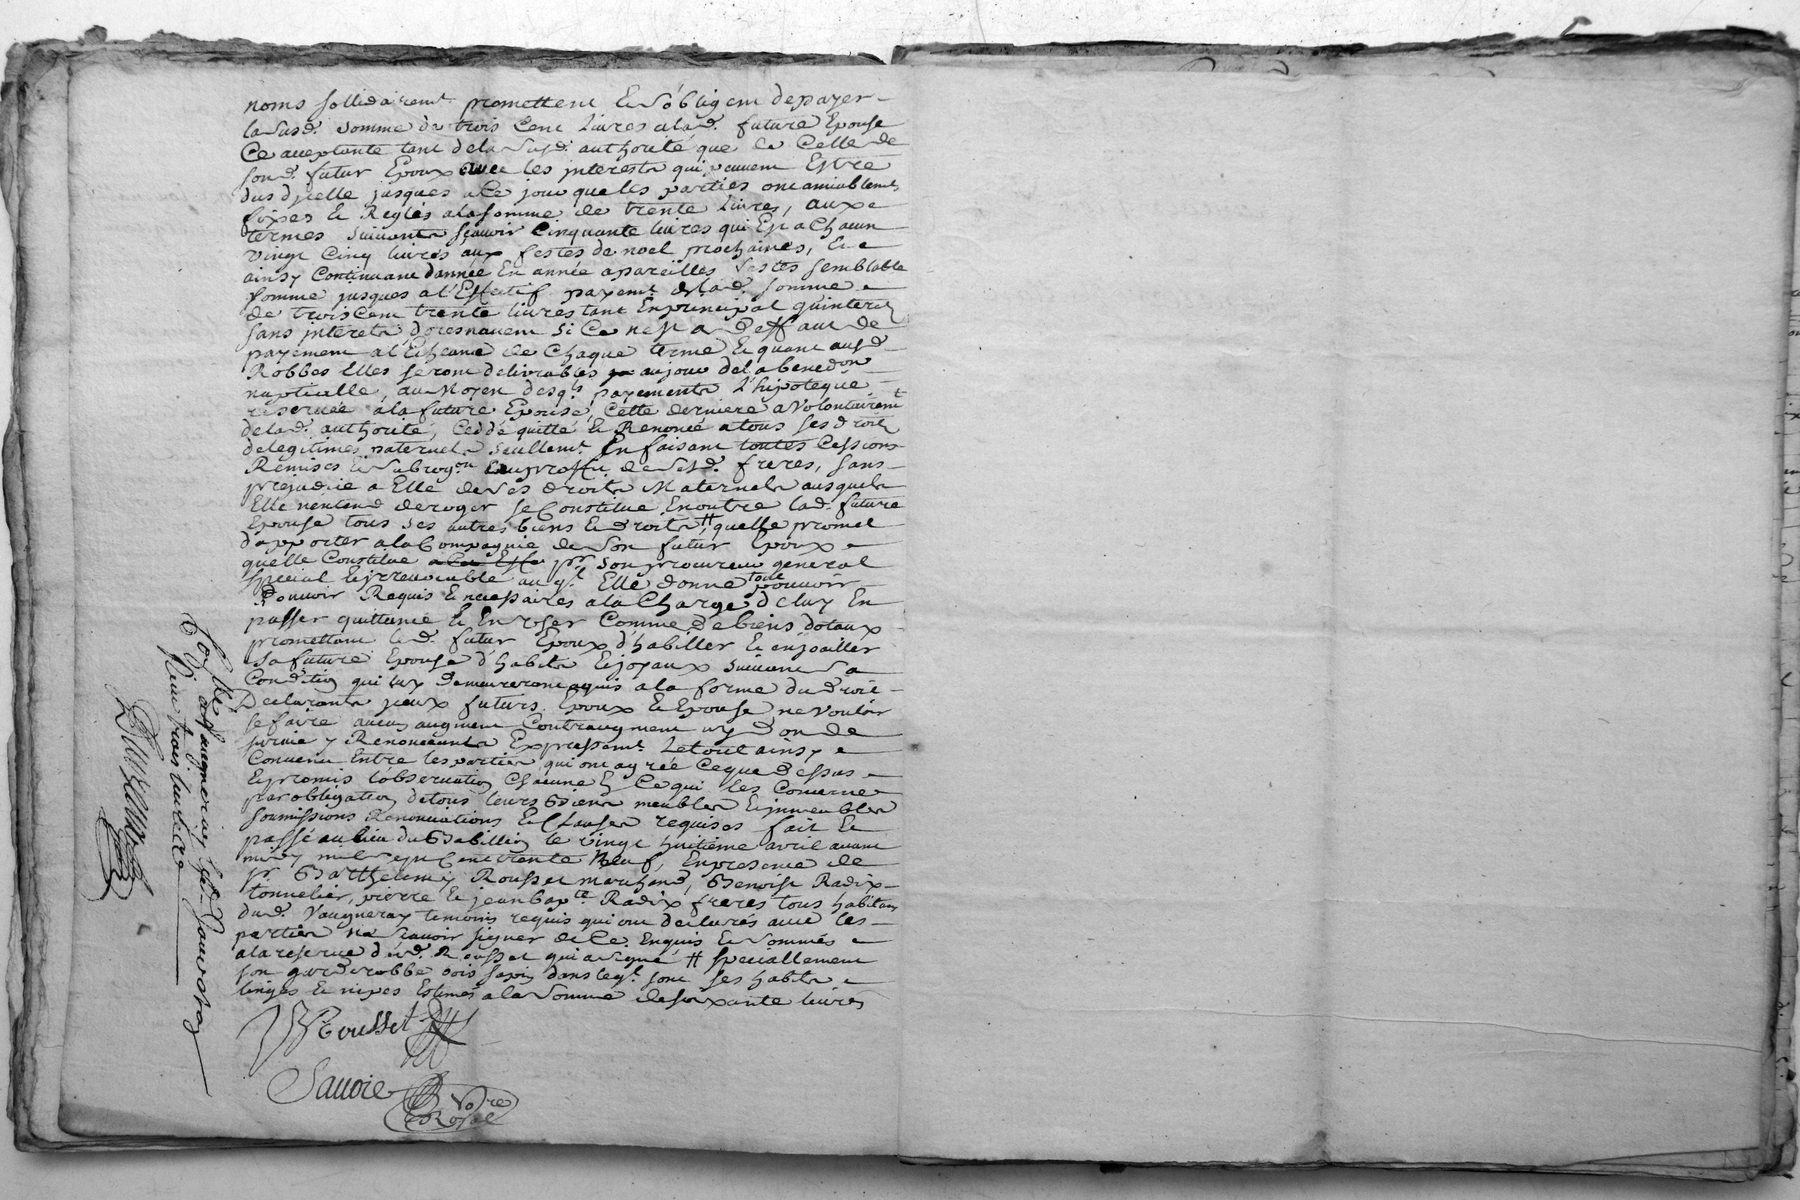 noms sollidairem.t promettent et s'obligent de payer
la susd. somme de trois cent livres a lad. future Epouse
Ce acceptante tant de la susd. authorité que de Celle de
sond. futur Epoux avec les interests qui peuvent Estre
dus d'jcelle jusques a Ce jour que les parties ont amiablem.t
fixés et Reglés a la somme de trente livres, aux
termes suivants sçavoir Cinquante livres qui Est a Chacun
vingt Cinq livres aux festes de noel prochaines, et
ainsy Continuant d'année En année a pareilles festes semblable
somme jusques a l'Effectif payem.t de lad. somme
de trois cent trente livres tant En principal qu'interets
sans interets d'oresnavent si Ce n'est a deffaut de
payement a l'Echeance de Chaque terme et quant ausd.
Robbes Elles seront delivrables au jour de la bened.on
nuptialle, au Moyen desq.ls payements l'hipoteque
reservée a la future Epouse, Cette derniere a volontairem.t
de lad. authorité, Ceddé quitté et Renoncé a tous ses droits
de legitimes paternels seullem.t En faisant toutes Cessions
Remises et subrog.on au proffit de sesd. freres, sans
prejudice a Elle de ses droits Maternels ausquels
Elle n'entend deroger se Constitue En outre lad. future
Epouse tous ses autres biens et droits # quelle promet
d'apporter a la Compagnie de son futur Epoux
quelle Constitue p.r son procureur general
special et jrrevocable auq.l Elle donne tout pouvoir
Pouvoir Requis et necessaires a la Charge d'eluy En
passer quittance et En User Comme de biens dotaux
promettant led. futur Epoux d'habiller et enjoailler
sa future Epouse d'habits et joyaux suivant sa
Condition qui luy Demeureront aquis a la forme du droit
Declarants jceux futurs Epoux et Epouse ne vouloir
se faire aucun augment Contraugment ny don de
survie y Renonceants Expressem.t Le tout ainsy
Convenu Entre les parties qui ont agréé Ce que Dessus
et promis l'observation Chacune En Ce qui les Concerne
par obligation de tous leurs Biens meubles et jmmeubles
soumissions Renonciations et Clauses requises fait et
passé au lieu du Babillion le vingt huitième avril avant
midy mil sept Cent trente Neuf, En presence de
s.r Barthelemy Rousset marchand, Benoist Radix
tonnelier, pierre et jean Bap.te Radix freres tous habitans
dud. Vaugneray temoins requis qui ont declarés avec les
parties ne sçavoir signer de Ce Enquis et sommés
a la reserve dud. Rousset qui a signé # speciallement
son garderobbe bois sapin dans leq.l sont ses habits
linges et nipes Estimés a la somme de soixante livres
Rousset
Sauvoie
No.re
Royal